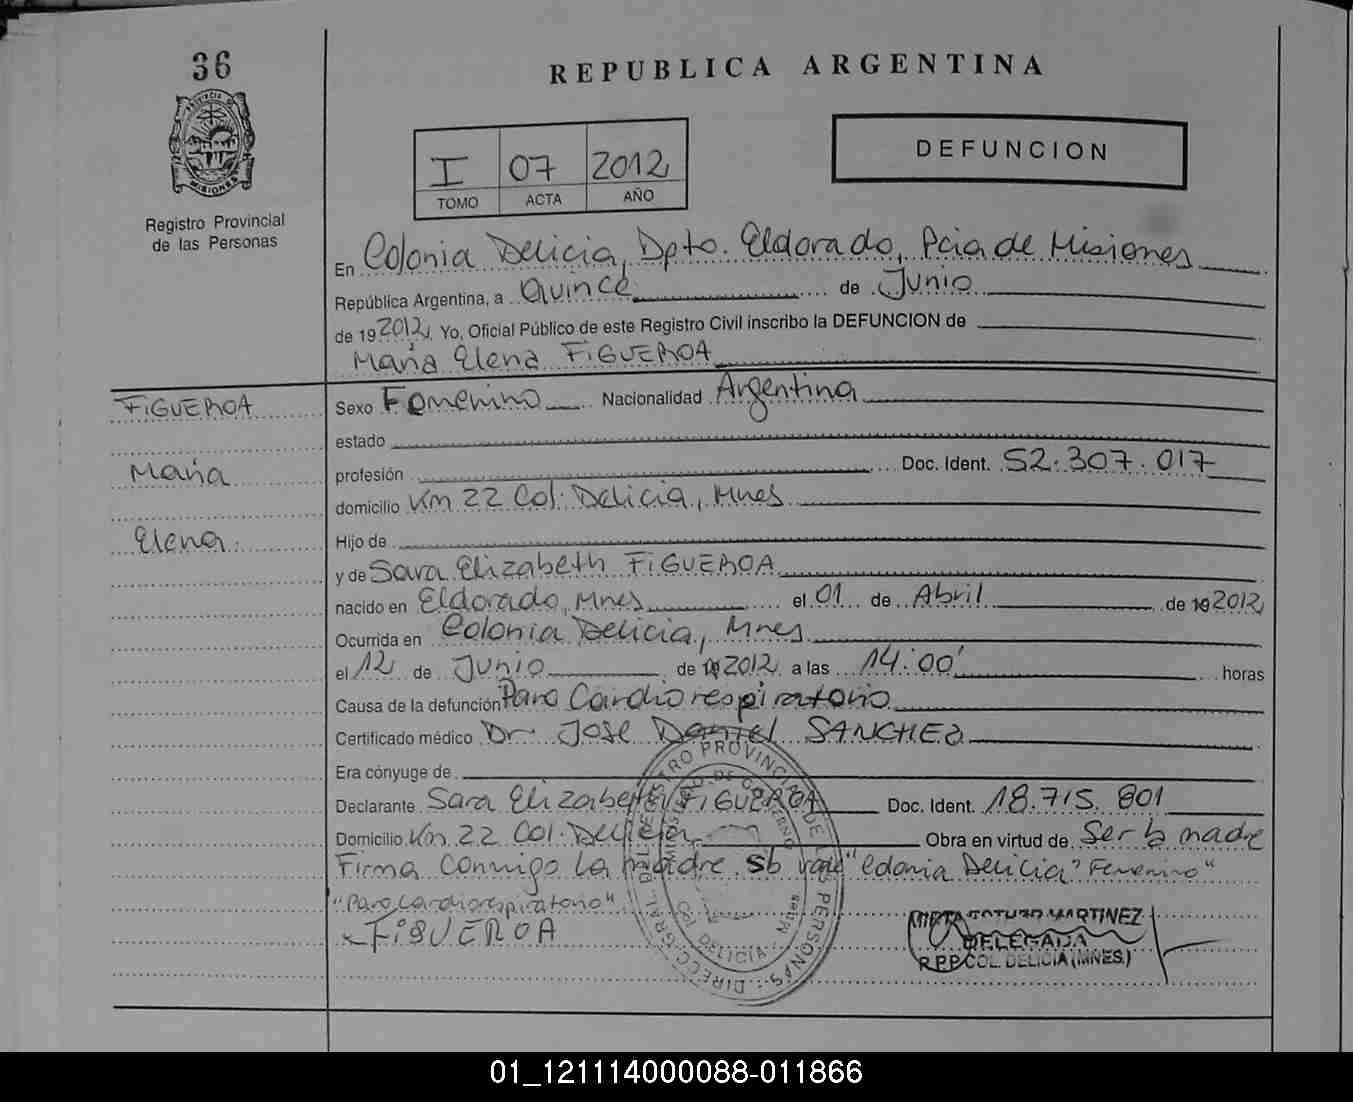 36
REPUBLICA ARGENTINA
PROVINCIA DE
MISIONES
Registro Provincial
de las Personas
I 07 2012
TOMO ACTA AÑO
DEFUNCION
En Colonia Delicia, Dpto. Eldorado, Pcia de Misiones
República Argentina, a Quince de Junio
de 19 2012 Yo, Oficial Público de este Registro Civil inscribo la DEFUNCION de
María Elena FIGUEROA
FIGUEROA
María
Elena
Sexo Femenino Nacionalidad Argentina
estado
profesión Doc. Ident. 52.307.017
domicilio Km 22 Col. Delicia, Mnes
Hijo de
y de Sara Elizabeth FIGUEROA
nacido en Eldorado, Mnes el 01 de Abril de 19 2012
Ocurrida en Colonia Delicia, Mnes
el 12 de Junio de 19 2012 a las 14:00' horas
Causa de la defunción Paro Cardiorespiratorio
Certificado médico Dr Jose Daniel SANCHEZ
Era cónyuge de
Declarante Sara Elizabeth FIGUEROA Doc. Ident. 18.715.801
Domicilio Km 22 Col. Delicia Obra en virtud de Ser la madre
Firma Conmigo la madre. S/b vale "Colonia Delicia" "Femenino"
"Paro Cardiorespiratorio"
x FIGUEROA
DIRECC. GRAL. DEL REGISTRO PROVINCIAL DE LAS PERSONAS
MINISTERIO DE GOBIERNO
COL. DELICIA - Mnes
MARTINEZ
DELEGADA
R.P.P COL. DELICIA (MNES.)
01_121114000088-011866